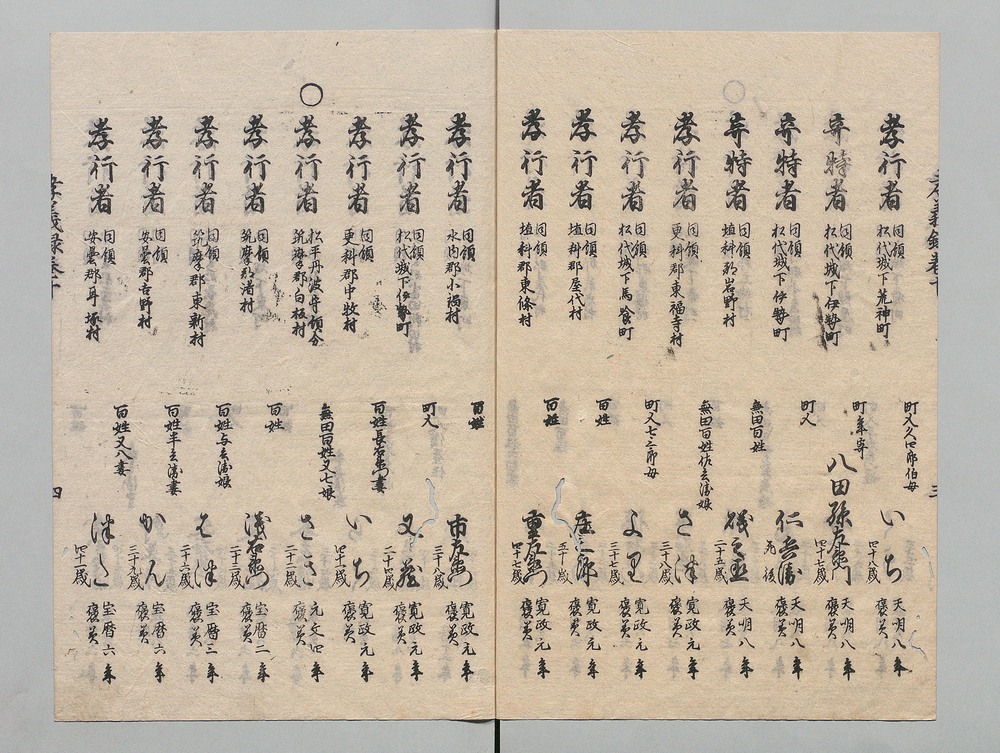 孝行者 同領 松代城下荒神町 町人久四郎伯母 いち 四十八歳 天明八年 褒美
奇特者 同領 松代城下伊勢町 町年寄 八田孫左衛門 四十七歳 天明八年 褒美
奇特者 同領 松代城下伊勢町 町人 仁兵衛 死後 天明八年 褒美
奇特者 同領 埴科郡岩野村 無田百姓 磯之丞 二十五歳 天明八年 褒美
孝行者 同領 更科郡東福寺村 無田百姓佐兵衛娘 さよ 三十八歳 寛政元年 褒美
孝行者 同領 松代城下馬喰町 町人七三郎母 より 三十七歳 寛政元年 褒美
孝行者 同領 埴科郡屋代村 百姓 庄三郎 五十歳 寛政元年 褒美
孝行者 同領 埴科郡東條村 百姓 重左衛門 四十七歳 寛政元年 褒美
孝義録巻十 三
孝行者 同領 水内郡小鍋村 百姓 市左衛門 三十八歳 寛政元年 褒美
孝行者 同領 松代城下伊勢町 町人 又蔵 二十四歳 寛政元年 褒美
孝行者 同領 更科郡中牧村 百姓長右衛門妻 いち 四十歳 寛政元年 褒美
孝行者 松平丹波守領分 筑摩郡白板村 無田百姓又七娘 さき 二十二歳 元文四年 褒美
孝行者 同領 筑摩郡渚村 百姓 浅右衛門 二十三歳 宝暦二年 褒美
孝行者 同領 筑摩郡東新村 百姓与兵衛娘 はつ 二十六歳 宝暦三年 褒美
孝行者 同領 安曇郡吉野村 百姓半兵衛妻 かん 三十九歳 宝暦六年 褒美
孝行者 同領 安曇郡耳塚村 百姓又八妻 四十一歳 宝暦六年 褒美
孝義録巻十 四